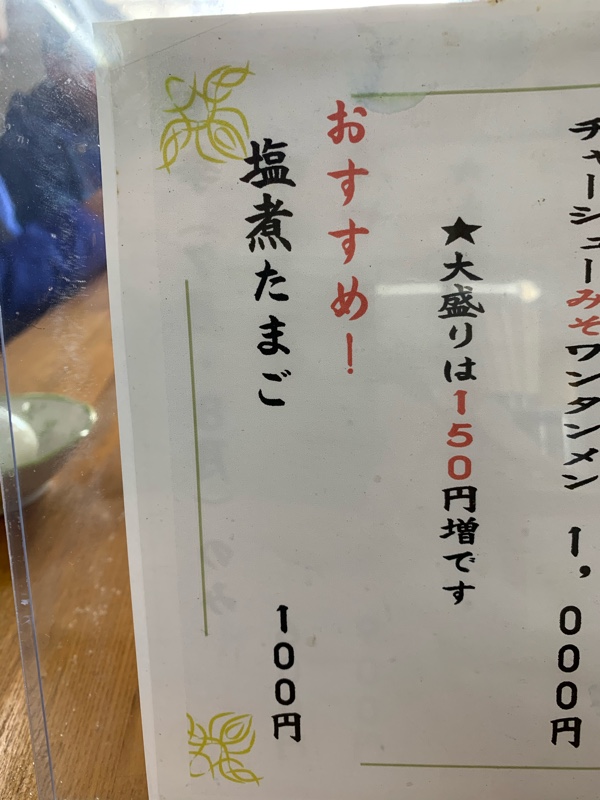 チャーシューみそワンタンメン 1,000円
★大盛りは150円増です
おすすめ!
塩煮たまご 100円